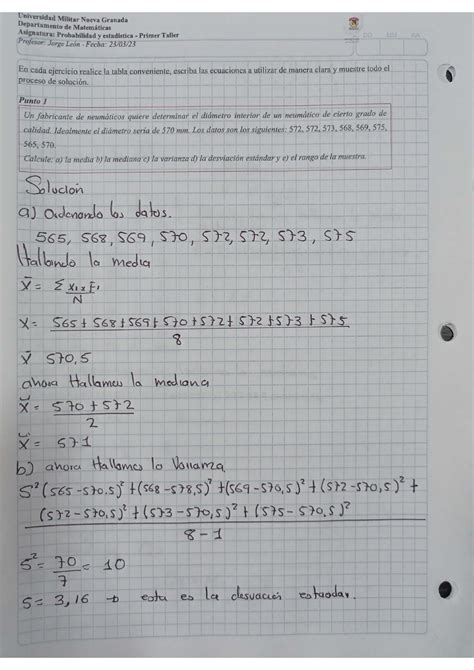 Universidad Militar Nueva Granada
Departamento de Matemáticas
Asignatura: Probabilidad y estadística - Primer Taller
Profesor: Jorge León - Fecha: 23/03/23
En cada ejercicio realice la tabla conveniente, escriba las ecuaciones a utilizar de manera clara y muestre todo el
proceso de solución.
Punto 1
Un fabricante de neumáticos quiere determinar el diámetro interior de un neumático de cierto grado de
calidad. Idealmente el diámetro sería de 570 mm. Los datos son los siguientes: 572, 572, 573, 568, 569, 575,
565, 570.
Calcule: a) la media b) la mediana c) la varianza d) la desviación estándar y e) el rango de la muestra.
Solución
a) Ordenando los datos.
565, 568, 569, 570, 572, 572, 573, 575
Hallando la media
X̄ = Σ x₁ x F₁ / N
X = 565 + 568 + 569 + 570 + 572 + 572 + 573 + 575 / 8
X̄ 570,5
ahora Hallamos la mediana
X̆ = 570 + 572 / 2
X̆ = 571
b) ahora Hallamos la Varianza
S² (565 - 570,5)² + (568 - 578,5)² + (569 - 570,5)² + (572 - 570,5)² +
(572 - 570,5)² + (573 - 570,5)² + (575 - 570,5)²
8 - 1
S² = 70 / 7 = 10
S = 3,16 → esta es la desvuación estandar.